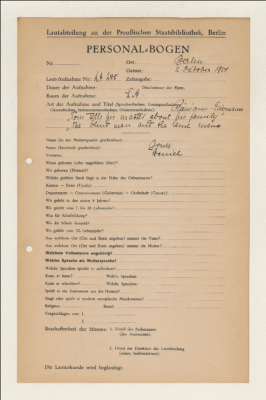 Lautabteilung an der Preußischen Staatsbibliothek, Berlin
PERSONAL-BOGEN
Nr.
Ort: Berlin
Datum: 2 Oktober
Laut-Aufnahme Nr.: LA
Zeitangabe:
Dauer der Aufnahme:
Durchmesser der Platte:
Raum der Aufnahme: L.A.
Art der Aufnahme und Titel
"Tom tells his mates about his family"
"The blind man and the lame man"
Name (in der Muttersprache geschrieben):
Name (lateinisch geschrieben): Jones
Vorname: Daniel
Wann geboren (oder ungefähres Alter)?
Wo geboren (Heimat)?
Welche größere Stadt liegt in der Nähe des Geburtsortes?
Kanton – Kreis (Ujedz)
Departement – Gouvernement (Gubernija) – Grafschaft (County)
Wo gelebt in den ersten 6 Jahren?
Wo gelebt vom 7. bis 20. Lebensjahr?
Was für Schulbildung?
Wo die Schule besucht?
Wo gelebt vom 20. Lebensjahr?
Aus welchem Ort (Ort und Kreis angeben) stammt der Vater?
Aus welchem Ort (Ort und Kreis angeben) stammt die Mutter?
Welchem Volksstamm angehörig?
Welche Sprache als Muttersprache?
Welche Sprachen spricht er außerdem?
Kann er lesen? Welche Sprachen?
Kann er schreiben? Welche Sprachen?
Spielt er ein Instrument aus der Heimat?
Singt oder spielt er moderne europäische Musikweisen?
Religion: Beruf:
Vorgeschlagen von: 1.
2.
Beschaffenheit der Stimme: 1. Urteil des Fachmannes
(des Assistenten):
2. Urteil des Direktors der Lautabteilung
(seines Stellvertreters):
Die Lauturkunde wird beglaubigt: